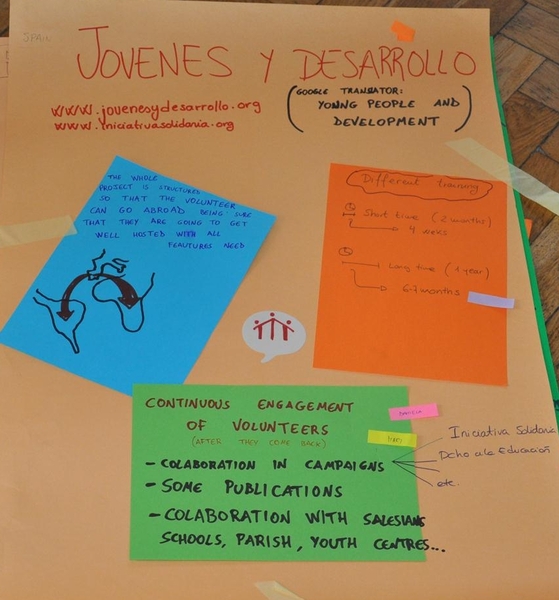 SPAIN
JOVENES Y DESARROLLO
www.jovenesydesarrollo.org
www.iniciativasolidaria.org
(GOOGLE TRANSLATOR:
YOUNG PEOPLE AND
DEVELOPMENT)
THE WHOLE
PROJECT IS STRUCTURED
SO THAT THE VOLUNTEER
CAN GO ABROAD BEING SURE
THAT THEY ARE GOING TO GET
WELL HOSTED WITH ALL
FEAUTURES NEED
Different training
Short time (2 months)
4 weeks
Long time (1 year)
6-7 months
CONTINUOUS ENGAGEMENT
OF VOLUNTEERS
(AFTER THEY COME BACK)
- COLABORATION IN CAMPAIGNS
Iniciativa Solidaria
Dcho a la Educación
etc.
- SOME PUBLICATIONS
- COLABORATION WITH SALESIANS
SCHOOLS, PARISH, YOUTH CENTRES...